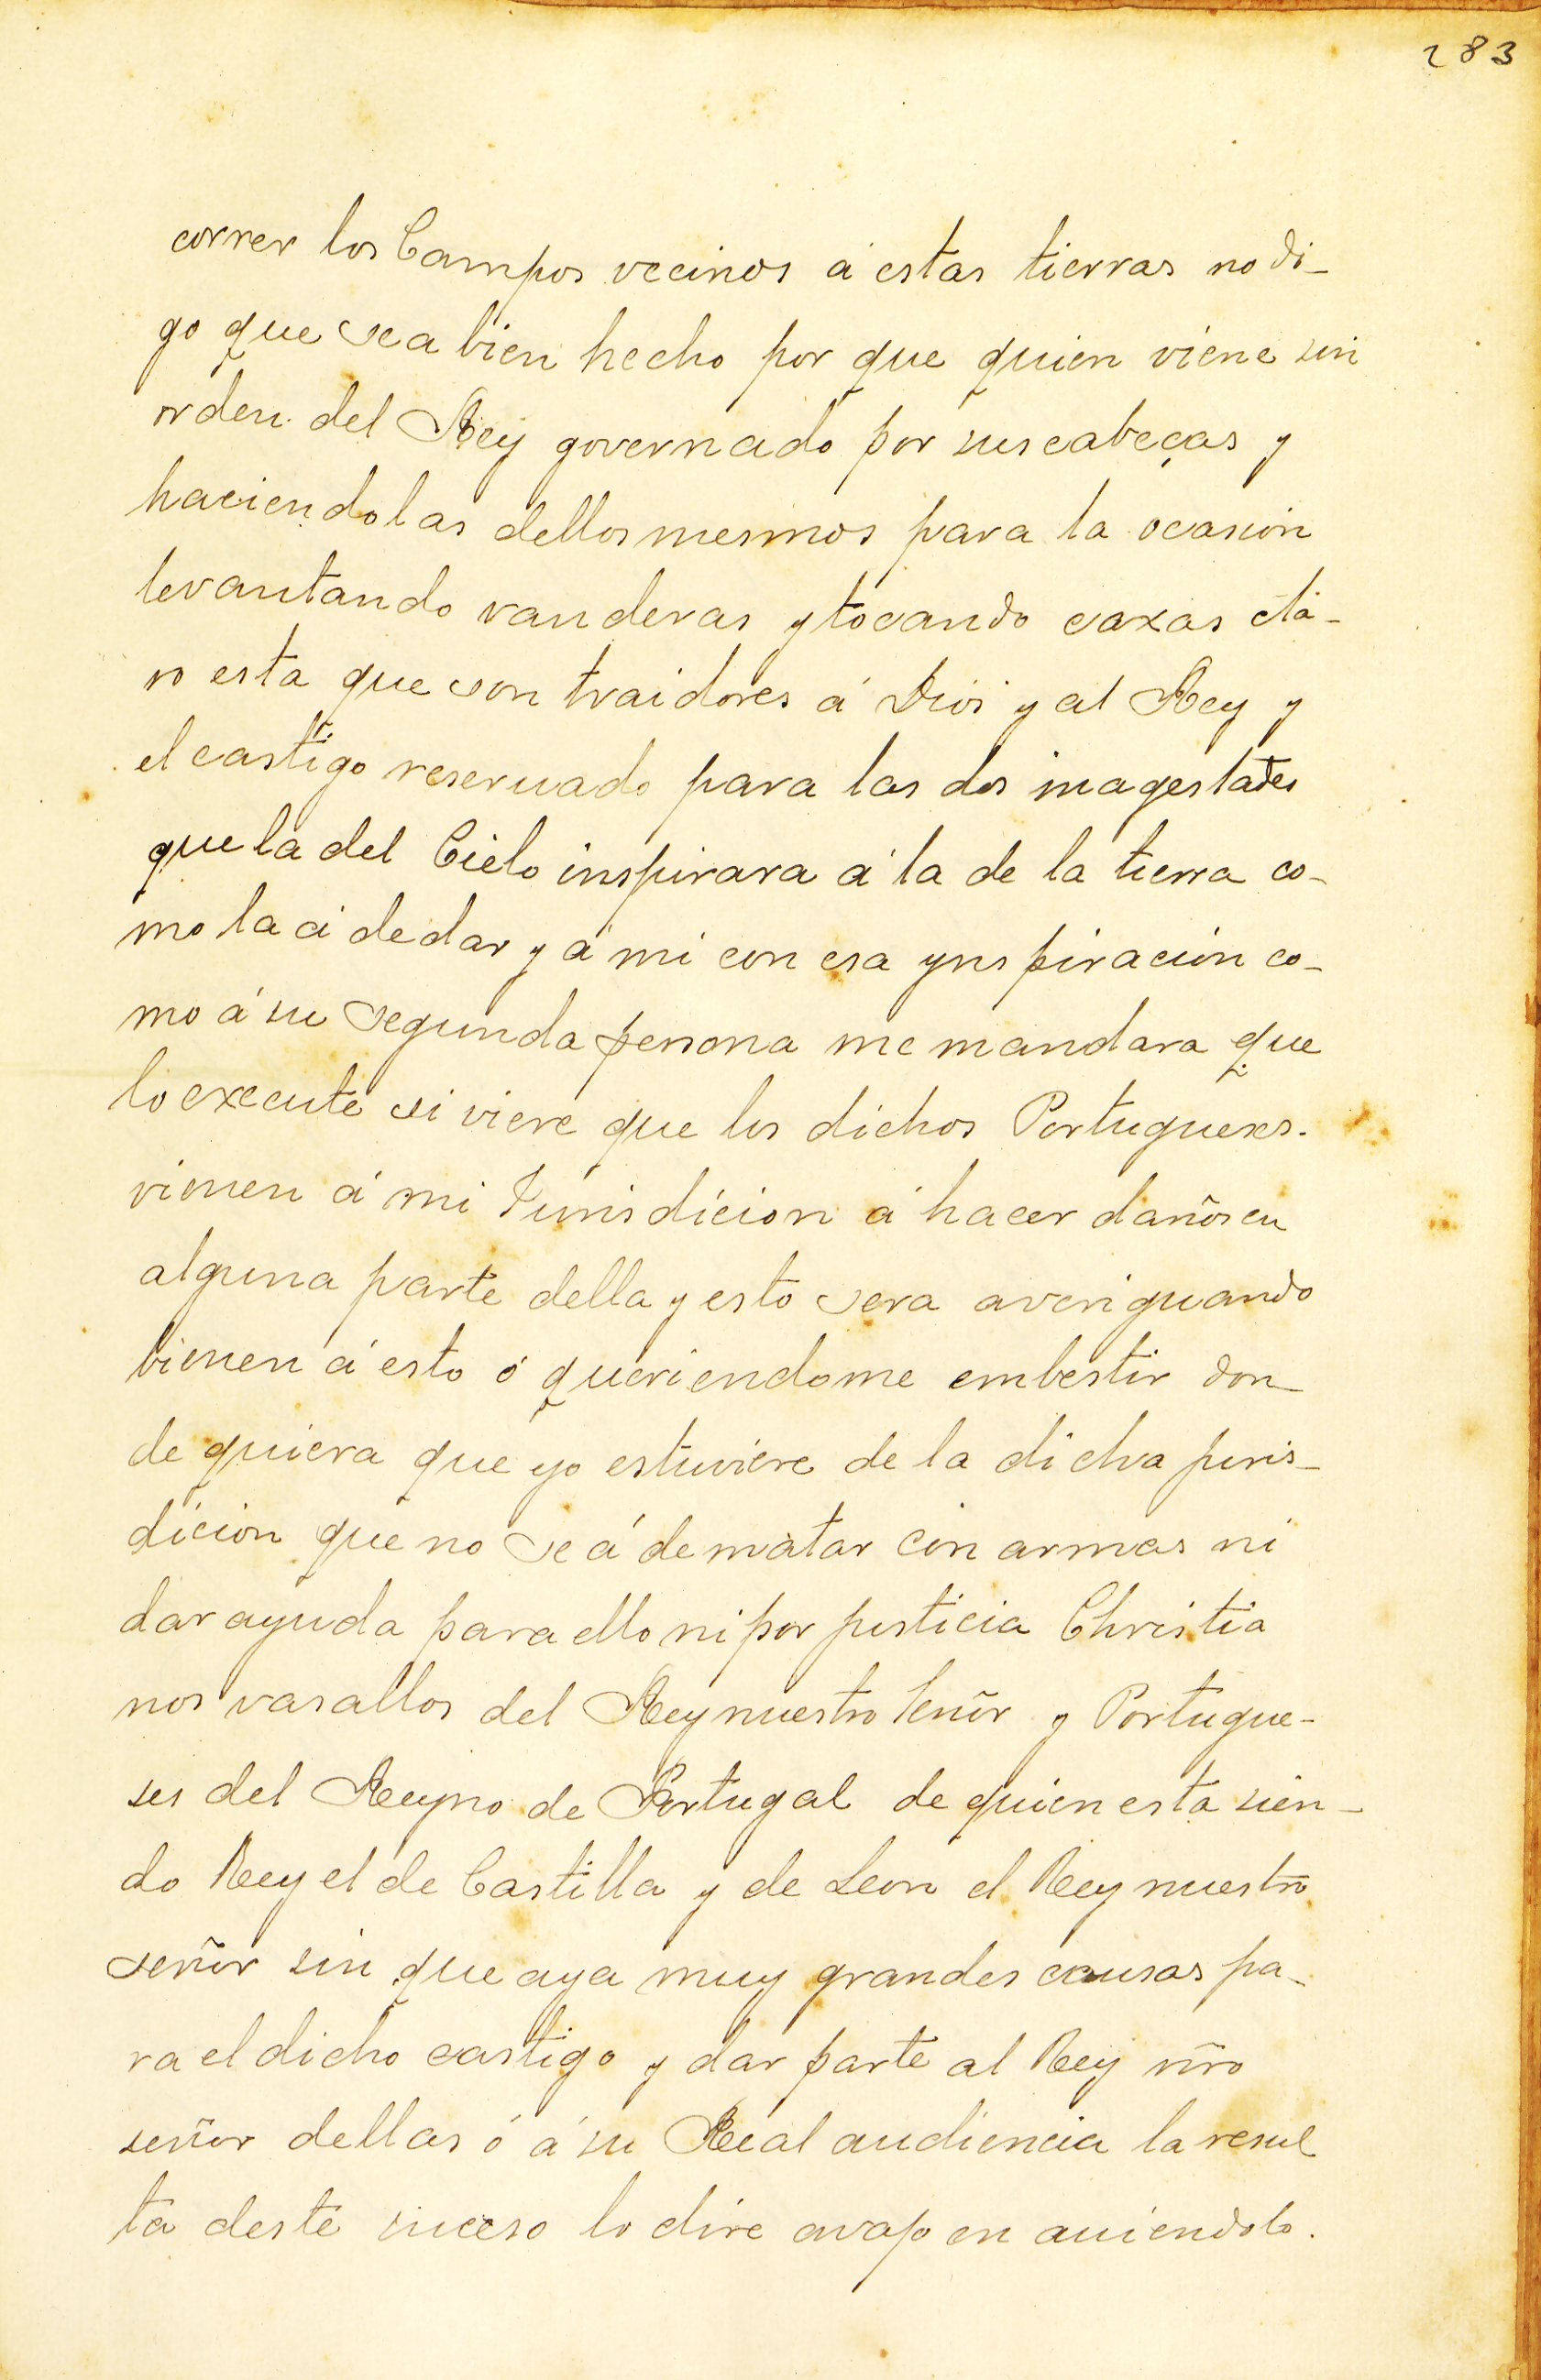 283
correr los Campos vecinos á estas tierras no di-
go que sea bien hecho por que quien viene sin
orden del Rey governado por sus cabeças y
haciendolas dellos mesmos para la ocasion
levantando vanderas y tocando caxas cla-
ro esta que son traidores á Dios y al Rey y
el castigo reseruado para las dos magestades
que la del Cielo inspirara á la de la tierra co-
mo la á de dar y á mi con esa ynspiración co-
mo á su segunda persona me mandara que
lo execute si viere que los dichos Portugueses.
vienen á mi Jurisdicion á hacer daños en
alguna parte della y esto sera averiguando
bienen á esto ó queriendome embestir don-
de quiera que yo estuviere de la dicha juris-
dicion que no se á de matar con armas ni
dar ayuda para ello ni por justicia Christia
nos vasallos del Rey nuestro Señor y Portugue-
ses del Reyno de Portugal de quien esta sien-
do Rey el de Castilla y de Leon el Rey nuestro
señor sin que aya muy grandes causas pa-
ra el dicho castigo y dar parte al Rey nr̃o
señor dellas ó á su Real audiencia la resul
ta deste suceso lo dire avajo en auiendolo.